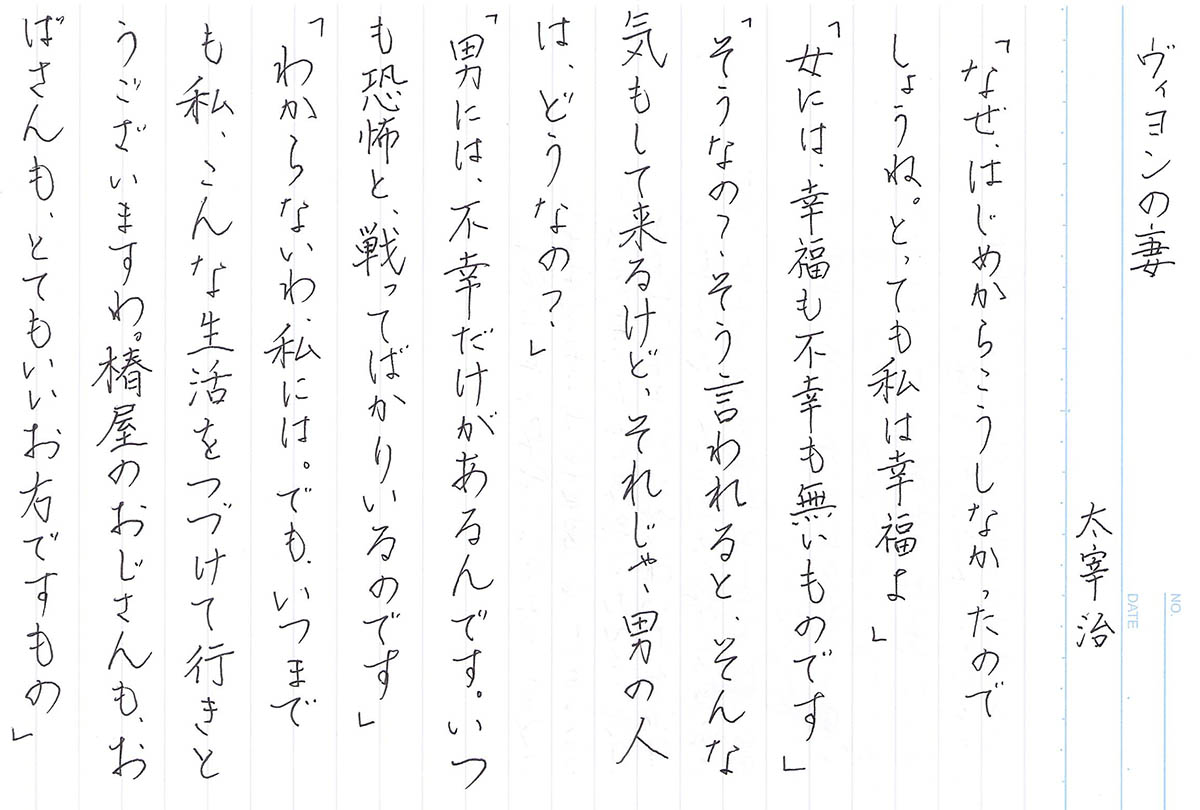 NO.
DATE
ヴィヨンの妻
太宰治
「なぜ、はじめからこうしなかったので
しょうね。とっても私は幸福よ」
「女には、幸福も不幸も無いものです」
「そうなの?そう言われると、そんな
気もして来るけど、それじゃ、男の人
は、どうなの?」
「男には、不幸だけがあるんです。いつ
も恐怖と、戦ってばかりいるのです」
「わからないわ、私には。でも、いつまで
も私、こんな生活をつづけて行きと
うございますわ。椿屋のおじさんも、お
ばさんも、とてもいいお方ですもの」